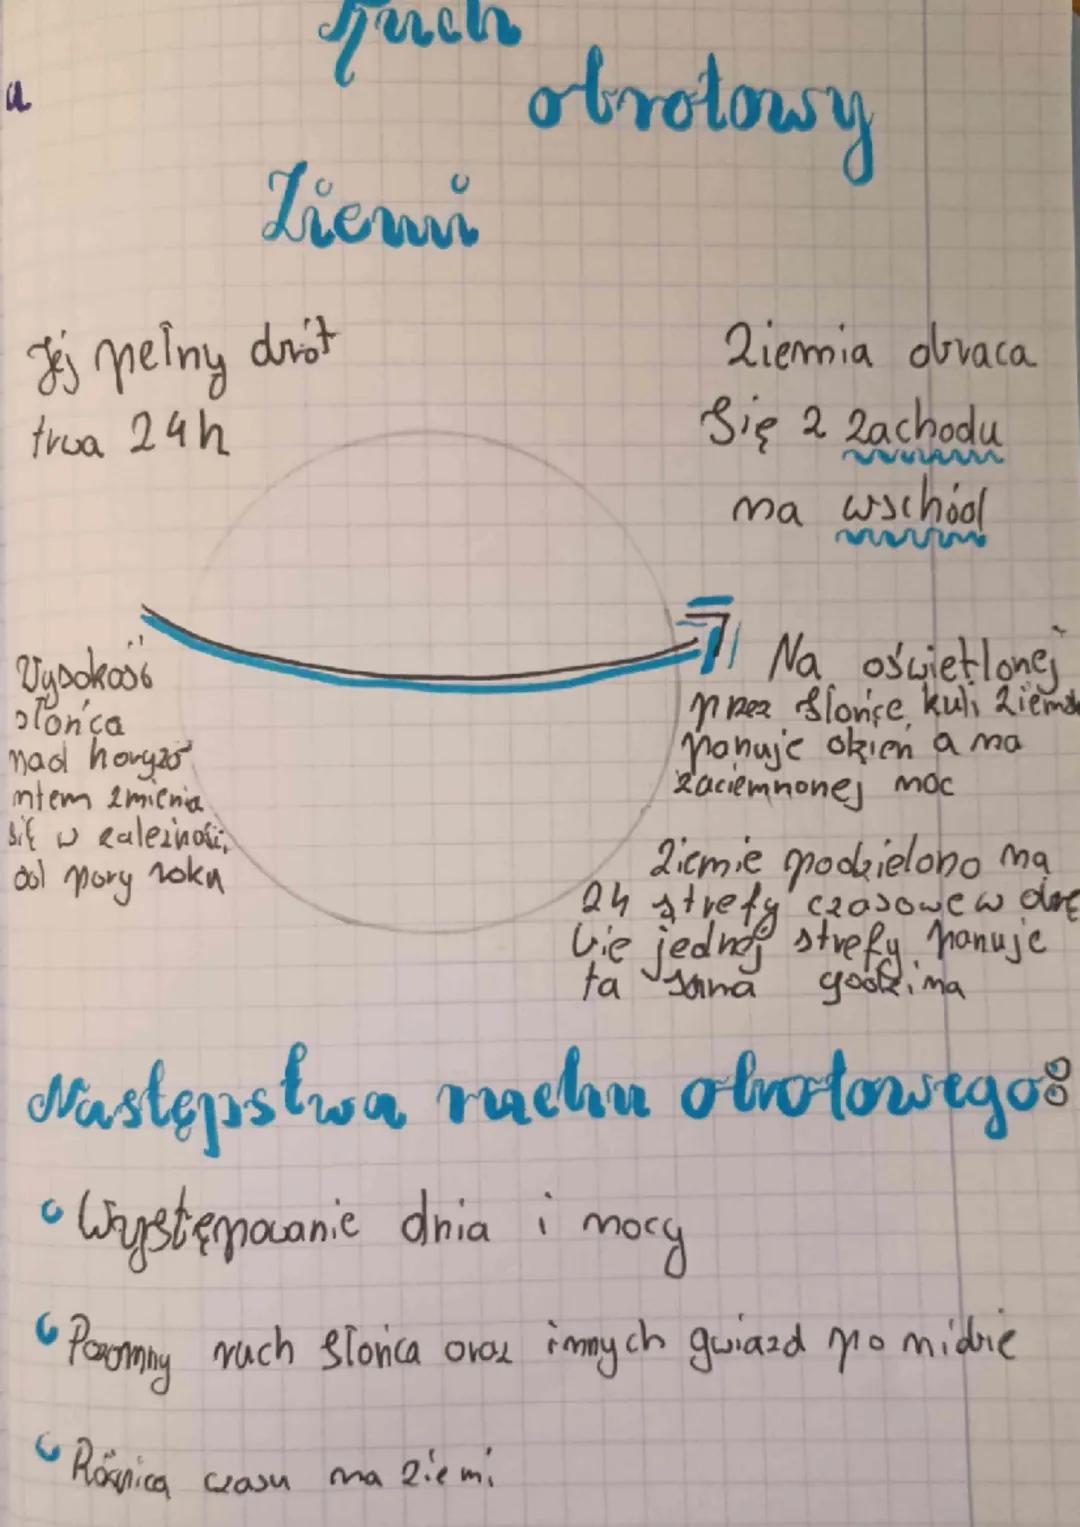 Ruch
obrotowy
Ziemi
Jej pełny obrót
trwa 24h
Ziemia obraca
Się z zachodu
na wschód
Wysokość
słońca
nad horyzo
ntem zmienia
się w zależności
od pory roku
Na oświetlonej
przez Słońce kuli ziemsk
panuje dzień a na
zaciemnonej noc
Ziemie podzielono na
24 strefy czasowe w obrę
bie jednej strefy panuje
ta sama godzina
Następstwa ruchu obrotowego:
Występowanie dnia i nocy
Pozorny ruch Słońca oraz innych gwiazd po niebie
Różnica czasu na Ziemi